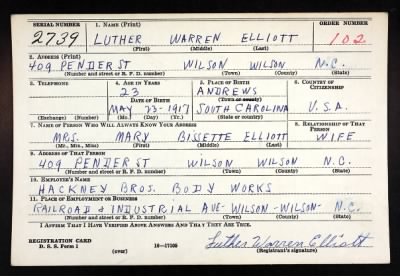 SERIAL NUMBER 1. NAME (Print) ORDER NUMBER
2739 LUTHER WARREN ELLIOTT 102
(First) (Middle) (Last)
2. ADDRESS (Print)
409 PENDER ST WILSON WILSON N.C.
(Number and street or R. F. D. number) (Town) (County) (State)
3. TELEPHONE 4. AGE IN YEARS 5. PLACE OF BIRTH 6. COUNTRY OF CITIZENSHIP
23 ANDREWS
DATE OF BIRTH (Town or county)
MAY 23-1917 SOUTH CAROLINA U.S.A.
(Exchange) (Number) (Mo.) (Day) (Yr.) (State or country)
7. NAME OF PERSON WHO WILL ALWAYS KNOW YOUR ADDRESS 8. RELATIONSHIP OF THAT PERSON
MRS. MARY BISSETTE ELLIOTT WIFE
(Mr., Mrs., Miss) (First) (Middle) (Last)
9. ADDRESS OF THAT PERSON
409 PENDER ST WILSON WILSON N.C.
(Number and street or R. F. D. number) (Town) (County) (State)
10. EMPLOYER'S NAME
HACKNEY BROS. BODY WORKS
11. PLACE OF EMPLOYMENT OR BUSINESS
RAILROAD & INDUSTRIAL AVE-WILSON-WILSON- N.C.
(Number and street or R. F. D. number) (Town) (County) (State)
I AFFIRM THAT I HAVE VERIFIED ABOVE ANSWERS AND THAT THEY ARE TRUE.
REGISTRATION CARD
D. S. S. Form 1 16-17105 Luther Warren Elliott
(over) (Registrant's signature)